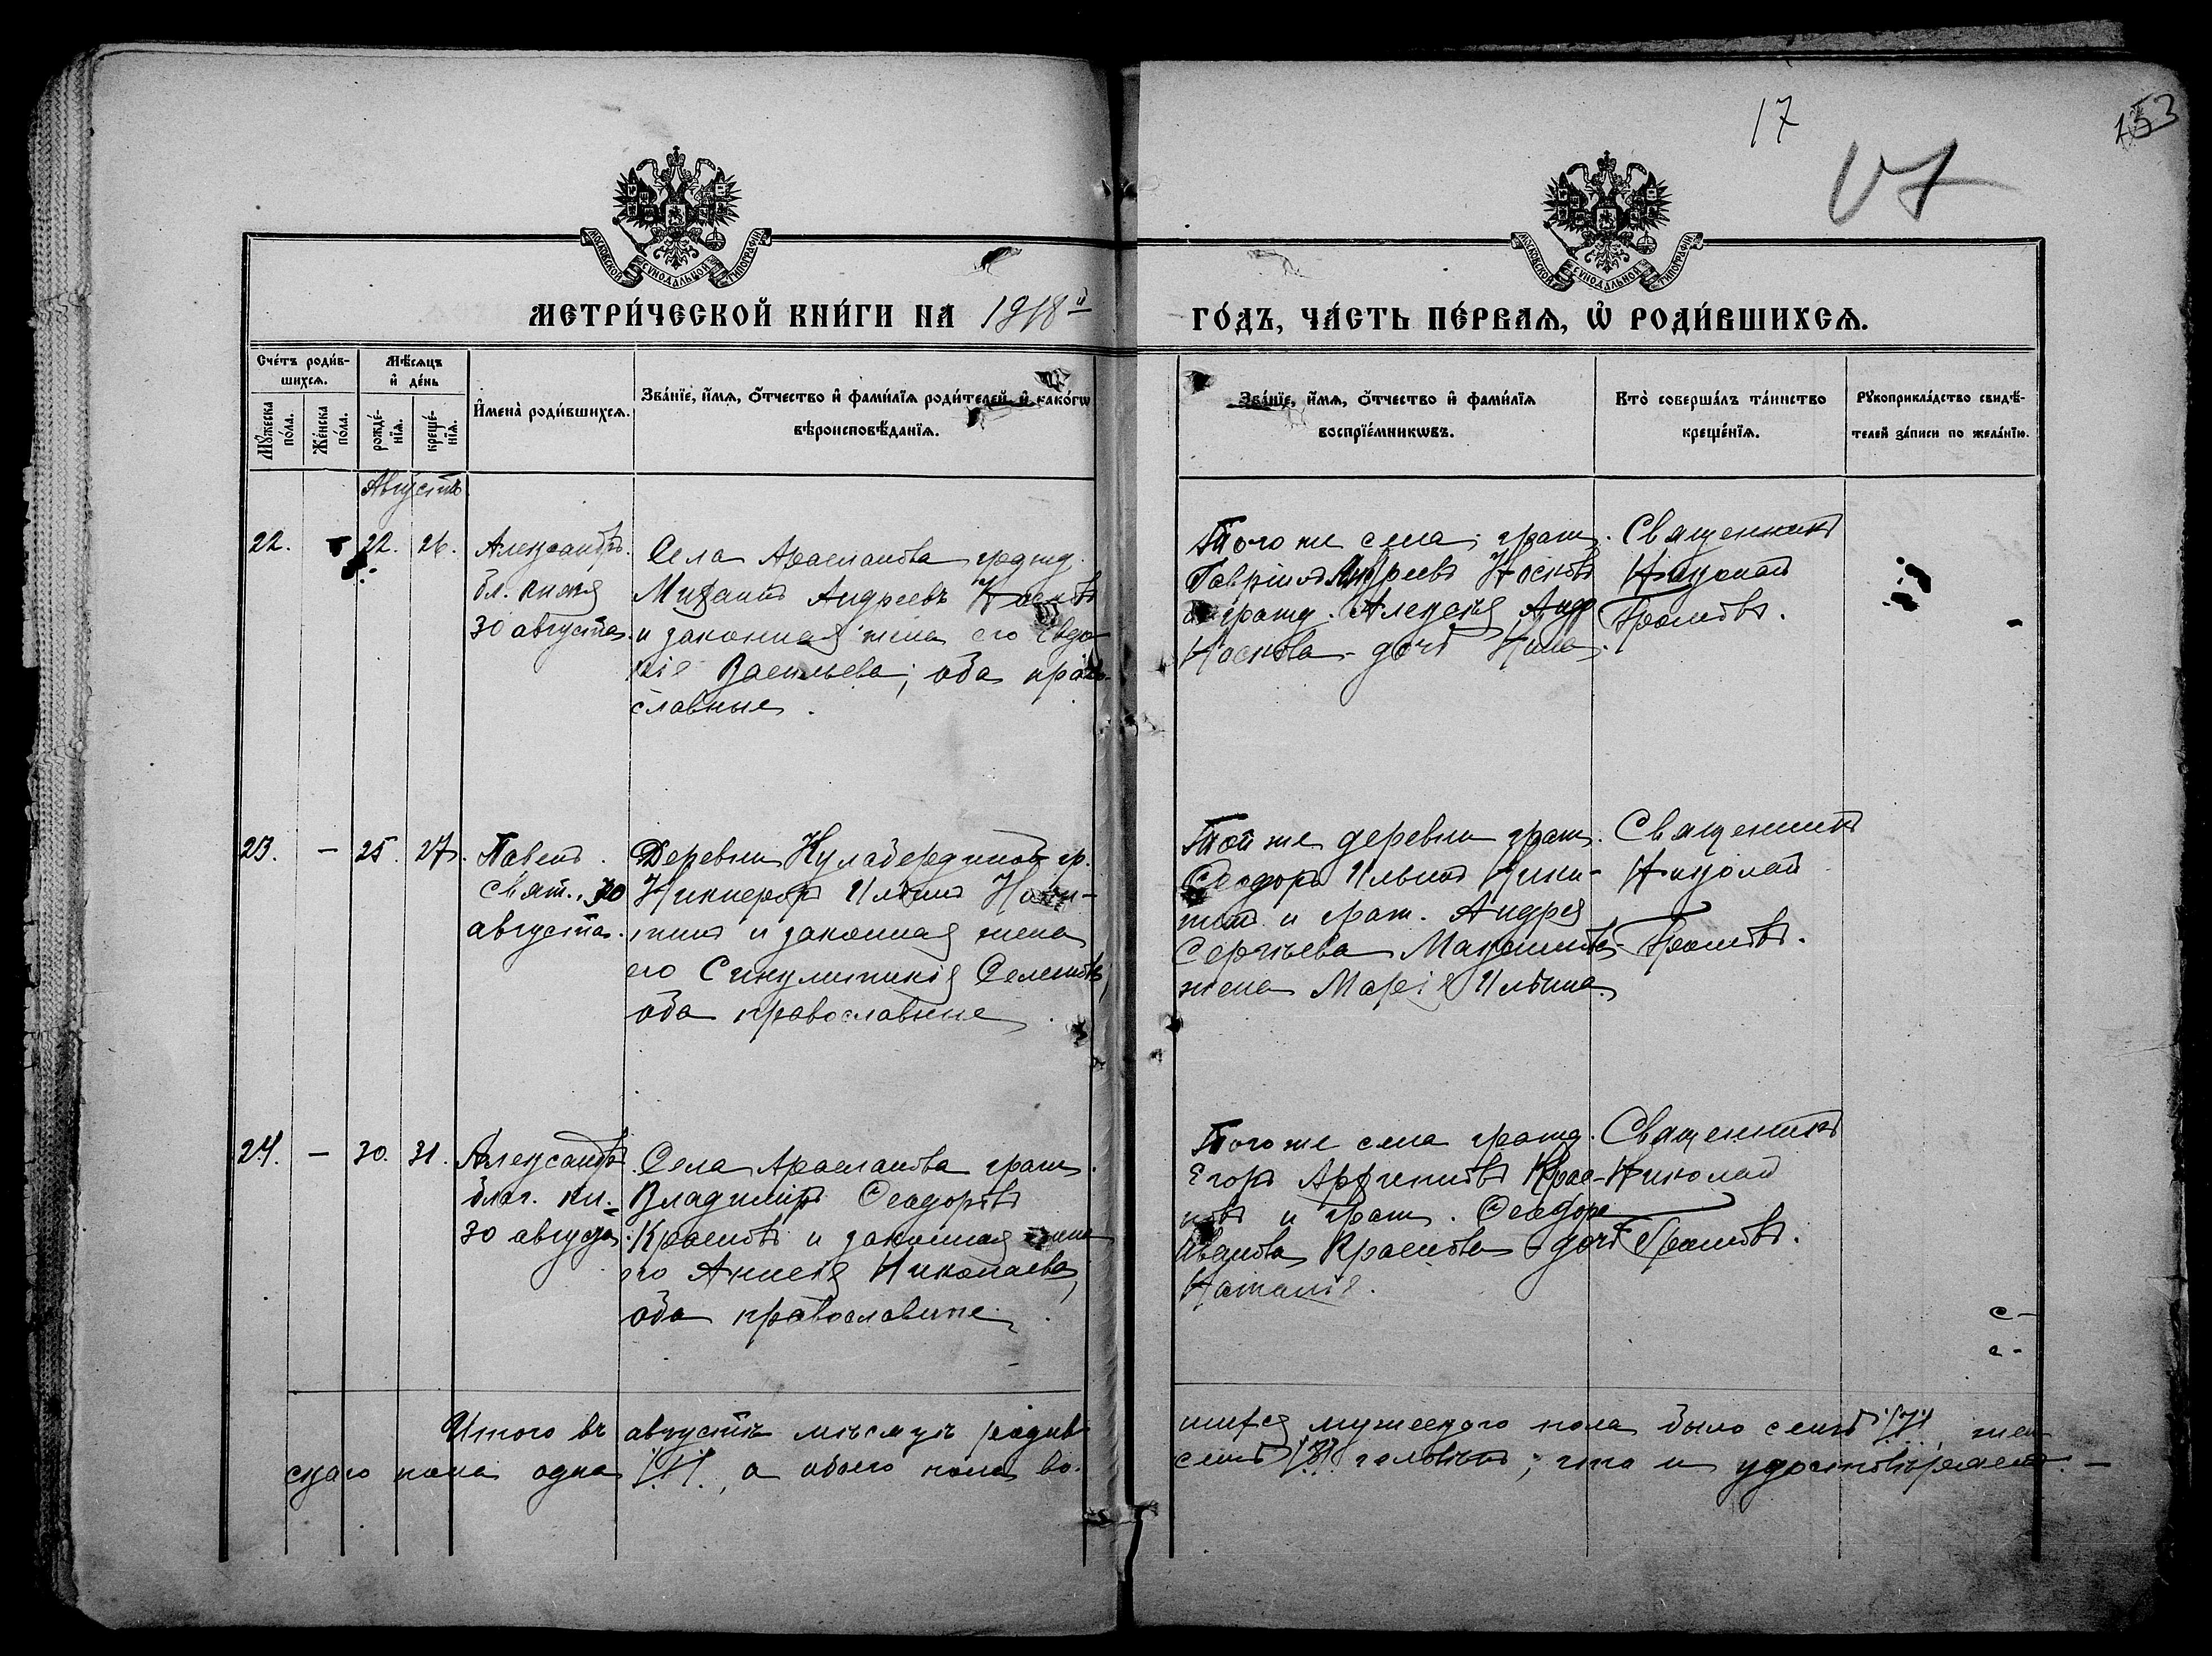 17
153
17
МОСКОВСКОЙ СУНОДАЛЬНОЙ ТИПОГРАФІИ
МОСКОВСКОЙ СУНОДАЛЬНОЙ ТИПОГРАФІИ
МЕТРИ́ЧЕСКОЙ КНИ́ГИ НА 1918й
ГО́ДЪ, ЧА́СТЬ ПЕ́РВАѦ, Ѡ҆ РОДИ́ВШИХСѦ.
Сче́тъ роди́в-
шихсѧ.
Мꙋ́жеска
по́ла.
Же́нска
по́ла.
Мѣ́сѧцъ
и҆ де́нь
рожде́-
нїѧ.
креще́-
нїѧ.
И҆мена̀ роди́вшихсѧ.
Зва́нїе, и҆́мѧ, ѻ҆́тчество и҆ фами́лїѧ роди́телей и҆ како́гѡ
вѣроисповѣ́данїѧ.
Зва́нїе, и҆́мѧ, ѻ҆́тчество и҆ фами́лїѧ
воспрїе́мникѡвъ.
Кто̀ соверша́лъ та́инство
креще́нїѧ.
Рꙋкоприкла́дство свидѣ́-
телей за́писи по жела́нїю.
Августъ
22. 22. 26.
Александръ.
бл. князя
30 августа.
Села Арасланова гражд.
Михаилъ Андреевъ Носковъ
и законная жена его Евдо-
кія Васильева; оба право-
славные.
Того же села, граж.
Гавріилъ Андреевъ Носковъ
и гражд. Алексѣя Андр.
Носкова - дочь Нина.
Священникъ
Николай
23. - 25. 27.
Павелъ.
Свят. 30
августа.
Деревни гр.
Никифоръ Ильинъ
и законная жена
его Синклитикія
оба православные.
Той же деревни граж.
Ѳеодоръ Ильинъ
и граж. Андрея
Сергѣева
жена Марія Ильина.
Священникъ
Николай
24. - 30. 31.
Александръ
благ. кн.
30 августа.
Села Арасланова граж.
Владиміръ Ѳеодоровъ
Красновъ и законная жена
его Николаева,
оба православные.
Того же села гражд.
Егоръ Крас-
новъ и граж. Ѳеодора
Иванова Краснова - дочь
Наталія.
Священникъ
Николай
Итого въ августѣ мѣсяцѣ родив-
шихся мужескаго пола было семь /7/, жен-
скаго пола одна /1/, а обоего пола во-
семь /8/ человѣкъ; что и удостовѣряемъ. -